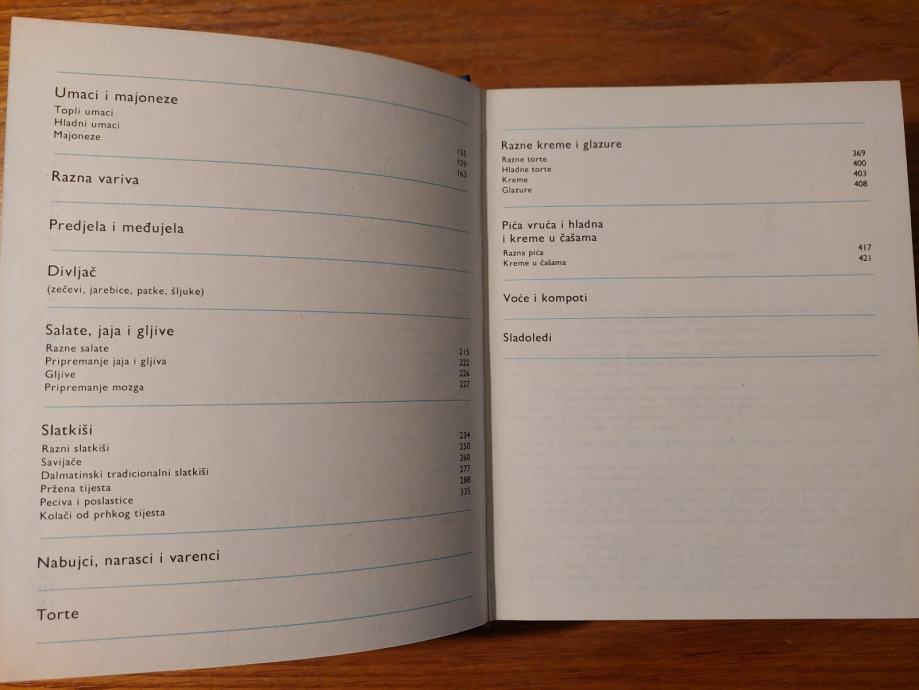 Umaci i majoneze
Topli umaci 155
Hladni umaci 159
Majoneze 163
Razna variva
Predjela i međujela
Divljač
(zečevi, jarebice, patke, šljuke)
Salate, jaja i gljive
Razne salate 215
Pripremanje jaja i gljiva 222
Gljive 226
Pripremanje mozga 237
Slatkiši
Razni slatkiši 234
Savijače 250
Dalmatinski tradicionalni slatkiši 260
Pržena tijesta 277
Peciva i poslastice 288
Kolači od prhkog tijesta 335
Nabujci, narasci i varenci
Torte
Razne kreme i glazure
Razne torte 369
Hladne torte 400
Kreme 403
Glazure 408
Pića vruća i hladna
i kreme u čašama
Razna pića 417
Kreme u čašama 421
Voće i kompoti
Sladoledi